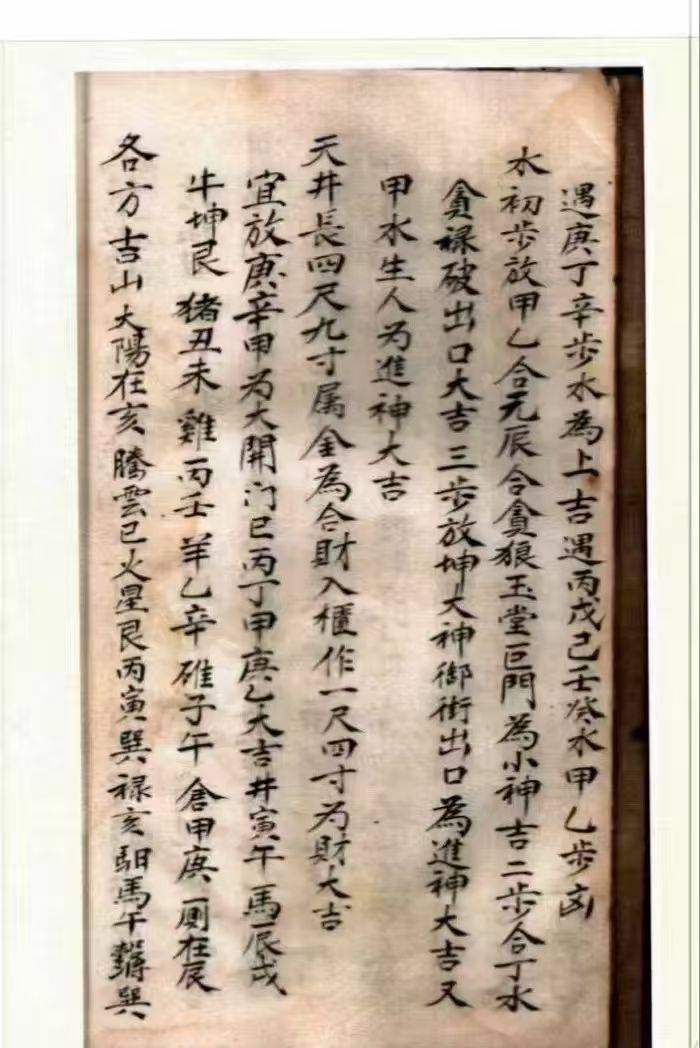 遇庚丁辛步水為上吉遇丙戊己壬癸水甲乙步凶
水初步放甲乙合元辰合貪狼玉堂巨門為小神吉二步合丁水
貪祿破出口大吉三步放坤大神御街出口為進神大吉又
甲水生人為進神大吉
天井長四尺九寸属金為合財入櫃作一尺四寸为財大吉
宜放庚辛甲为大開门巳丙丁甲庚乙大吉井寅午馬辰戌
牛坤艮猪丑未雞丙壬羊乙辛碓子午倉甲庚厠在辰
各方吉山太陽在亥騰雲巳火星艮丙寅巽禄亥馹馬午巽